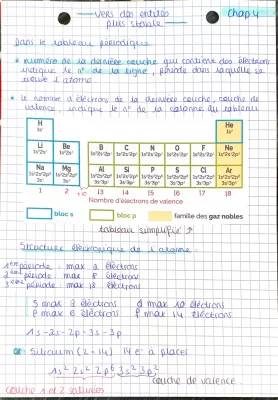 Vers des entités
Chap 4
plus stable
Dans le tableau périodique
* numéro de la dernière couche qui contient des électrons
indique le n° de la ligne, période dans laquelle se
trouve l'atome
* le nombre d'électrons de la dernière couche, couche de
valence, indique le n° de la colonne du tableau
H
1s¹
He
1s²
Li
1s²2s¹
Be
1s²2s²
B
1s²2s²2p¹
C
1s²2s²2p²
N
1s²2s²2p³
O
1s²2s²2p⁴
F
1s²2s²2p⁵
Ne
1s²2s²2p⁶
Na
1s²2s²2p⁶
3s¹
Mg
1s²2s²2p⁶
3s²
Al
1s²2s²2p⁶
3s²3p¹
Si
1s²2s²2p⁶
3s²3p²
P
1s²2s²2p⁶
3s²3p³
S
1s²2s²2p⁶
3s²3p⁴
Cl
1s²2s²2p⁶
3s²3p⁵
Ar
1s²2s²2p⁶
3s²3p⁶
1 2 +10 13 14 15 16 17 18
Nombre d'électrons de valence
bloc s bloc p famille des gaz nobles
tableau simplifié ↗
Structure électronique de l'atome
1ère période : max 2 électrons
2ème période : max 8 électrons
3ème période : max 18 électrons
S max 2 électrons d max 10 électrons
P max 6 électrons f max 14 électrons
1s - 2s - 2p - 3s - 3p
ex: Silicium (Z = 14) 14 e⁻ à placer
1s² 2s² 2p⁶ 3s² 3p²
couche de valence
couche 1 et 2 saturées